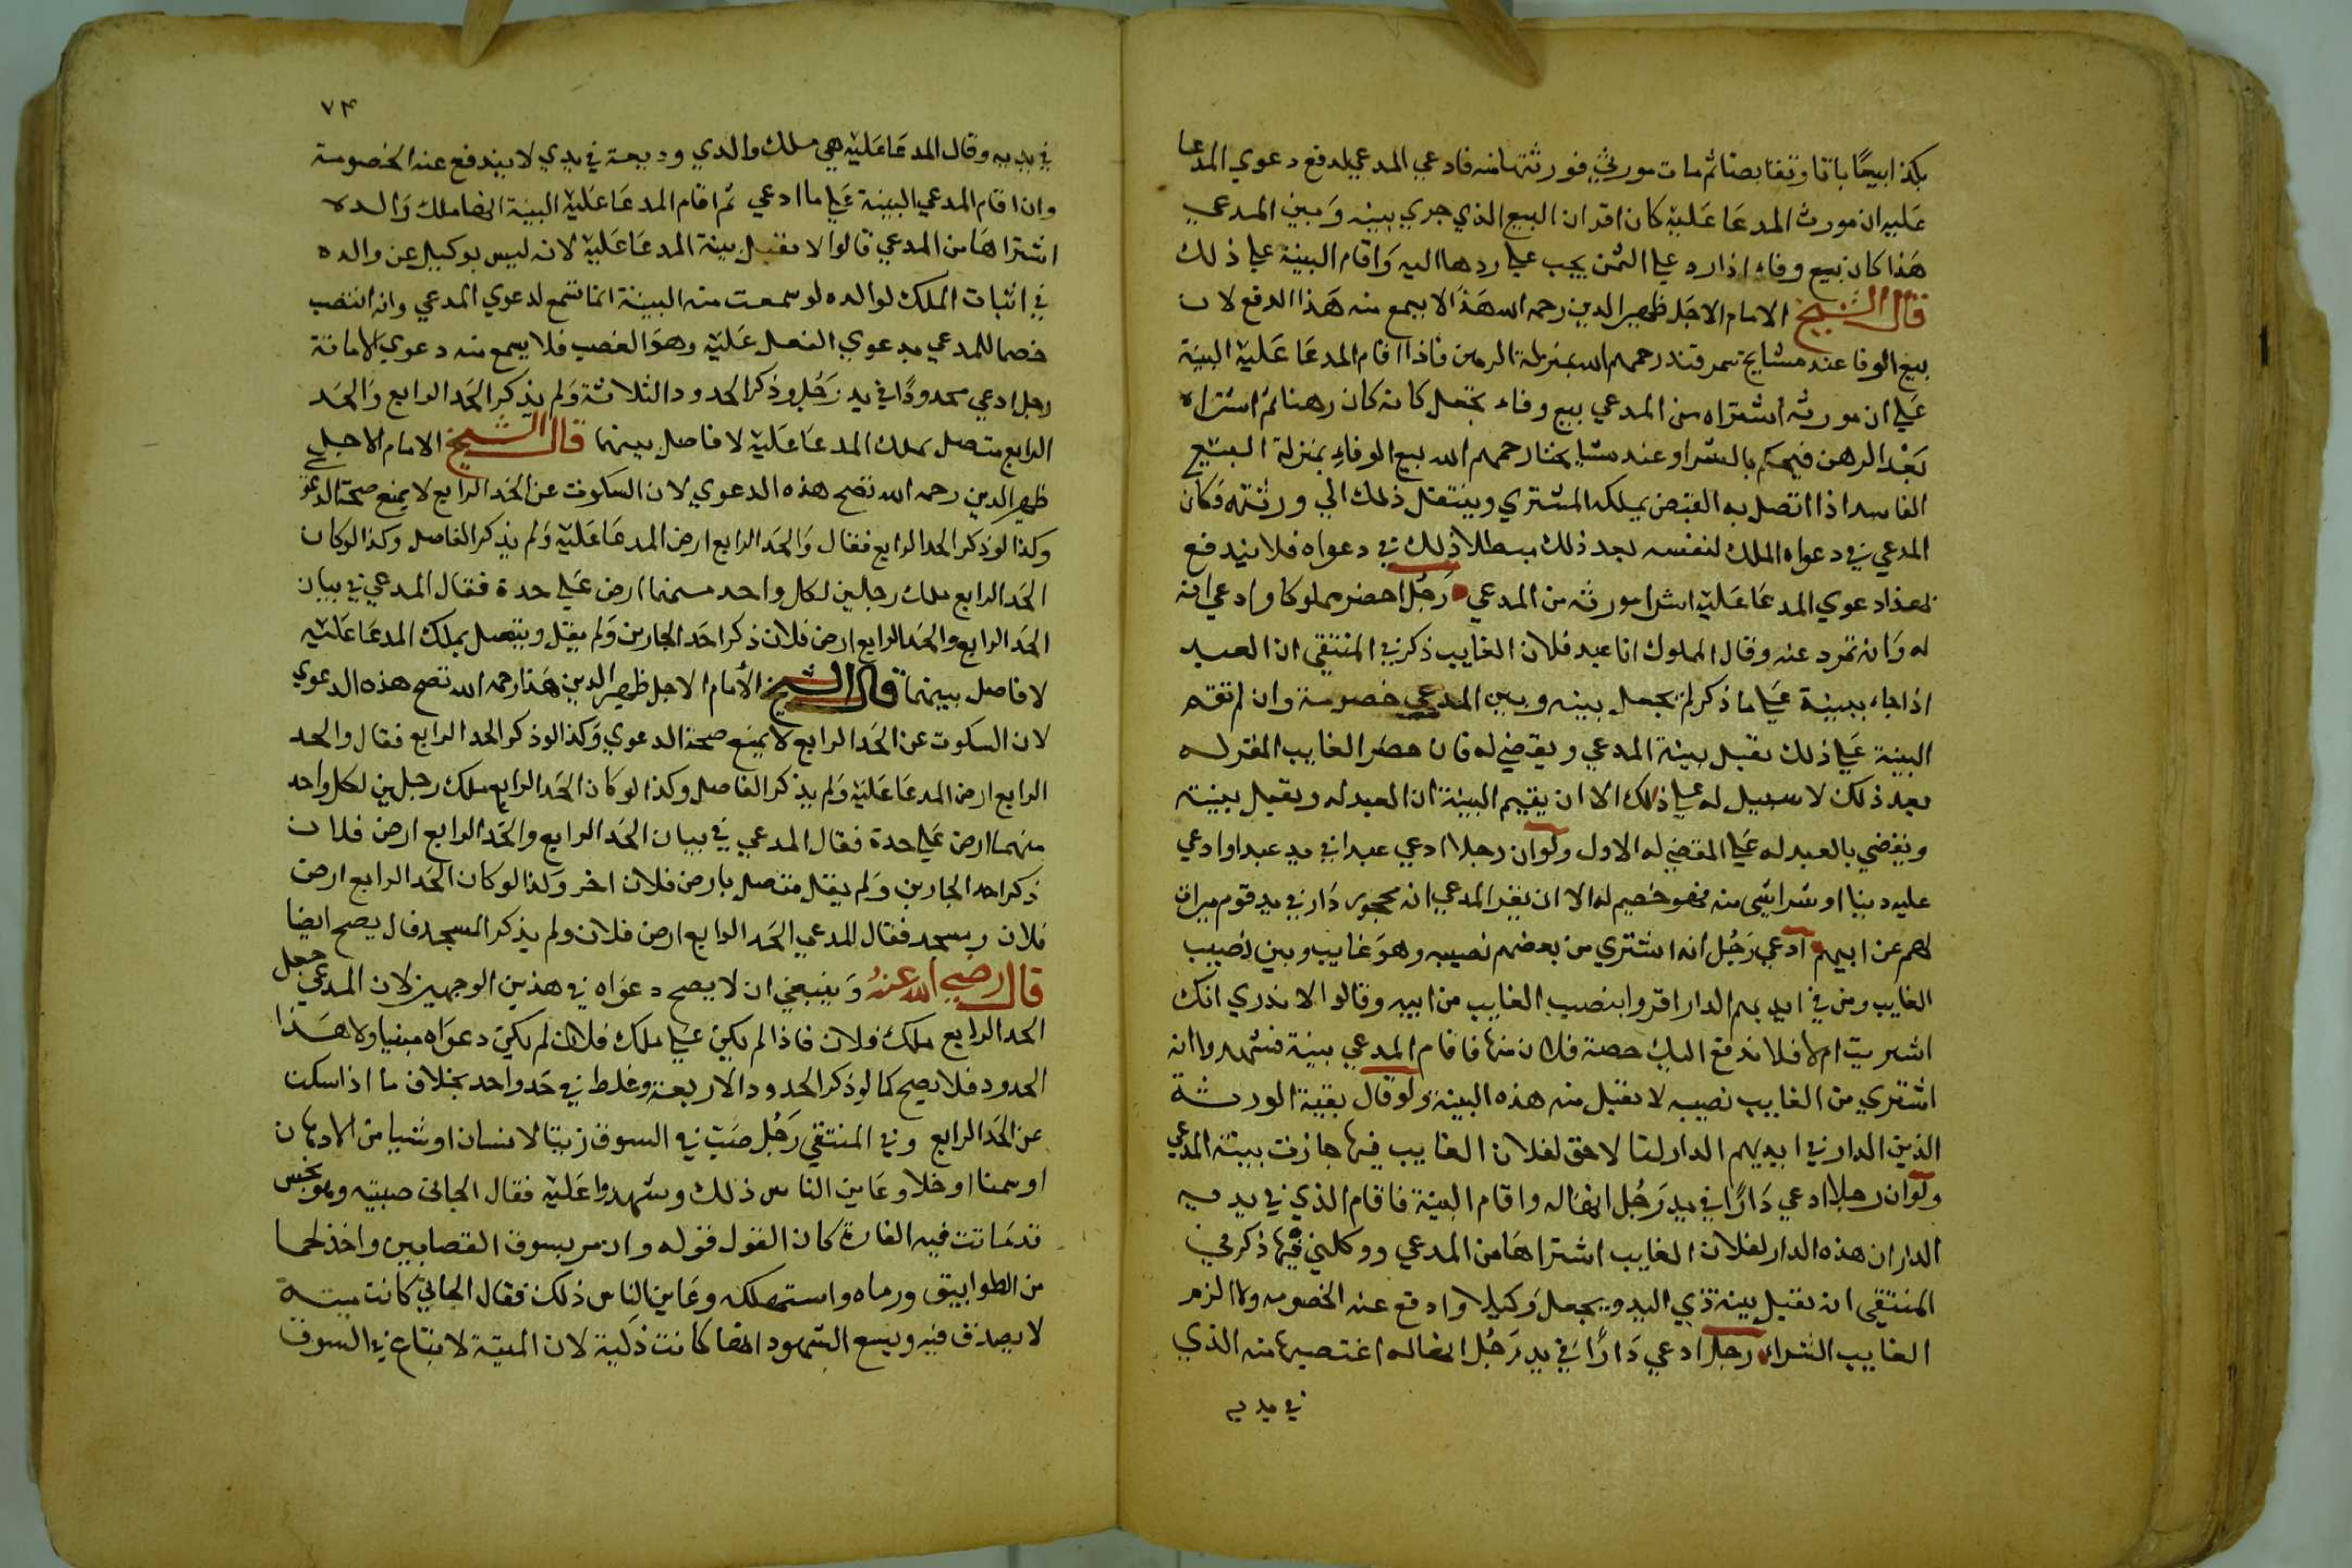 بكذا بيعا باتا وتقابضا ثم مات مورثي فورثتها منه فادعي المدعي لدفع دعوي المدعا
عليه ان مورث المدعا عليه كان اقر ان البيع الذي جري بينه وبين المدعي
هذا كان بيع وفاء اذا رد علي الثمن يجب علي ردها اليه واقام البينة علي ذلك
قال الشيخ الامام الاجل ظهير الدين رحمه الله هذا لا يسمع منه هذا الدفع لان
بيع الوفا عند مشايخ سمرقند رحمهم الله بمنزلة الرهن فاذا اقام المدعا عليه البينة
علي ان مورثه اشتراه من المدعي بيع وفاء يجعل كانه كان رهنا ثم اشتراه
بعد الرهن فيحكم بالشرا وعند مشايخنا رحمهم الله بيع الوفاء بمنزلة البيع
الفاسد اذا اتصل به القبض يملكه المشتري وينتقل ذلك الي ورثته فكان
المدعي في دعواه الملك لنفسه بعد ذلك مبطلا ذلك في دعواه فلا يندفع
بهذا دعوي المدعا عليه اشرا مورثه من المدعي رجل احضر مملوكا وادعي انه
له وانه تمرد عنه وقال المملوك انا عبد فلان الغايب ذكر في المنتقي ان العبد
اذا جاء ببينة علي ما ذكر لم يجعل بينه وبين المدعي خصومة وان لم تقم
البينة علي ذلك يقبل بينة المدعي ويقضي له فان حضر الغايب المقر له
بعد ذلك لا سبيل له علي ذلك الا ان يقيم البينة ان العبد له ويقبل بينته
ويقضي بالعبد له علي المقضي له الاول ولو ان رجلا ادعي عبدا في يد عبد او ادعي
عليه دينا او شراشي منه فهو خصيم له الا ان يقر المدعي انه محجور دار في يد قوم ميراث
لهم عن ابيهم ادعي رجل انه اشتري من بعضهم نصيبه وهو غايب وبين نصيب
الغايب ومن في ايديهم الدار اقروا بنصيب الغايب من ابيه وقالوا لا ندري انك
اشتريت ام لا فلا ندفع اليك حصة فلان منها فاقام المدعي بينة فشهدوا انه
اشتري من الغايب نصيبه لا يقبل منه هذه البينة ولو قال بقية الورثة
الذين الدار في ايديهم الدار لنا لا حق لفلان الغايب فيها جازت بينة المدعي
ولو ان رجلا ادعي دارا في يد رجل انها له واقام البينة فاقام الذي في يديه
الدار ان هذه الدار لفلان الغايب اشتراها من المدعي ووكلني فيها ذكر في
المنتقي ان يقبل بينة ذي اليد ويجعل وكيلا وادفع عنه الخصومه ولا الزم
الغايب الشراء رجل ادعي دارا في يد رجل انها له اغتصبها منه الذي
في يديه
٧٤
في يديه وقال المدعا عليه هي ملك والدي وديعة في يدي لا يندفع عنه الخصومة
وان اقام المدعي البينة علي ما ادعي ثم اقام المدعا عليه البينة انها ملك والده
اشتراها من المدعي قالوا لا يقبل بينة المدعا عليه لانه ليس بوكيل عن والده
في اثبات الملك لوالده لو سمعت منه البينة انما تسمع لدعوي المدعي وانه انتصب
خصما للمدعي بدعوي الفعل عليه وهو الغصب فلا يسمع منه دعوي الامانة
رجل ادعي محدودا في يد رجل وذكر الحدود الثلاثة ولم يذكر الحد الرابع والحد
الرابع متصل بملك المدعا عليه لا فاصل بينهما قال الشيخ الامام الاجل
ظهير الدين رحمه الله تصح هذه الدعوي لان السكوت عن الحد الرابع لا يمنع صحة الدعوي
وكذا لو ذكر الحد الرابع فقال والحد الرابع ارض المدعا عليه ولم يذكر الفاصل وكذا لو كان
الحد الرابع ملك رجلين لكل واحد منهما ارض علي حدة فقال المدعي في بيان
الحد الرابع والحد الرابع ارض فلان ذكر احد الجارين ولم يقل ويتصل بملك المدعا عليه
لا فاصل بينهما قال الشيخ الامام الاجل ظهير الدين هذا رحمه الله تصح هذه الدعوي
لان السكوت عن الحد الرابع لا يمنع صحة الدعوي وكذا لو ذكر الحد الرابع فقال والحد
الرابع ارض المدعا عليه ولم يذكر الفاصل وكذا لو كان الحد الرابع ملك رجلين لكل واحد
منهما ارض علي حدة فقال المدعي في بيان الحد الرابع والحد الرابع ارض فلان
ذكر احد الجارين ولم يقل متصل بارض فلان اخر وكذا لو كان الحد الرابع ارض
فلان ومسجد فقال المدعي الحد الرابع ارض فلان ولم يذكر المسجد قال يصح ايضا
قال رضي الله عنه وينبغي ان لا يصح دعواه في هذين الوجهين لان المدعي جعل
الحد الرابع ملك فلان فاذا لم يكن علي ملك فلان لم يكن دعواه مبنيا ولا هذا
الحدود فلا يصح كما لو ذكر الحدود الاربعة وغلط في حد واحد بخلاف ما اذا سكت
عن الحد الرابع وفي المنتقي رجل صب في السوق زيتا لانسان او شيا من الادهان
او سمنا او خلا وعاين الناس ذلك وشهدوا عليه فقال الجاني صبيته وهو نجس
قد ماتت فيه الفارة كان القول قوله وان مر بسوق القصابين واخذ لحما
من الطوابيق ورماه واستهلكه وعاين الناس ذلك فقال الجاني كانت ميتة
لا يصدق فيه ويسع الشهود انها كانت ذكية لان الميتة لا تباع في السوق